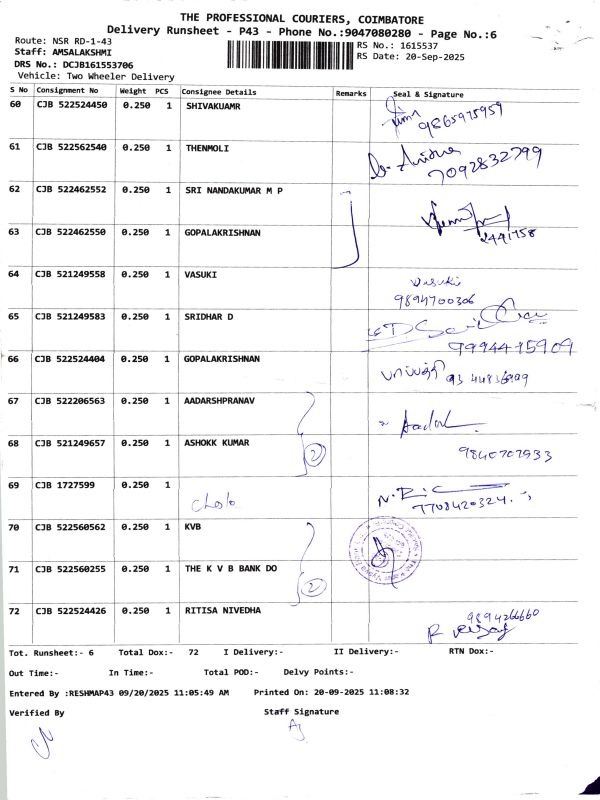 THE PROFESSIONAL COURIERS, COIMBATORE
Delivery Runsheet - P43 - Phone No.:9047080280 - Page No.:6
Route: NSR RD-1-43
RS No.: 1615537
Staff: AMSALAKSHMI
RS Date: 20-Sep-2025
DRS No.: DCJB161553706
Vehicle: Two Wheeler Delivery
S No Consignment No Weight PCS Consignee Details Remarks Seal & Signature
60 CJB 522524450 0.250 1 SHIVAKUAMR
9865975959
61 CJB 522562540 0.250 1 THENMOLI
7092832799
62 CJB 522462552 0.250 1 SRI NANDAKUMAR M P
63 CJB 522462550 0.250 1 GOPALAKRISHNAN
2491758
64 CJB 521249558 0.250 1 VASUKI
Vasuki
9894700306
65 CJB 521249583 0.250 1 SRIDHAR D
9994415909
66 CJB 522524404 0.250 1 GOPALAKRISHNAN
67 CJB 522206563 0.250 1 AADARSHPRANAV
68 CJB 521249657 0.250 1 ASHOKK KUMAR
2
9840707933
69 CJB 1727599 0.250 1
7708420324
70 CJB 522560562 0.250 1 KVB
71 CJB 522560255 0.250 1 THE K V B BANK DO
2
72 CJB 522524426 0.250 1 RITISA NIVEDHA
9894266660
Tot. Runsheet:- 6 Total Dox:- 72 I Delivery:- II Delivery:- RTN Dox:-
Out Time:- In Time:- Total POD:- Delvy Points:-
Entered By :RESHMAP43 09/20/2025 11:05:49 AM Printed On: 20-09-2025 11:08:32
Verified By Staff Signature